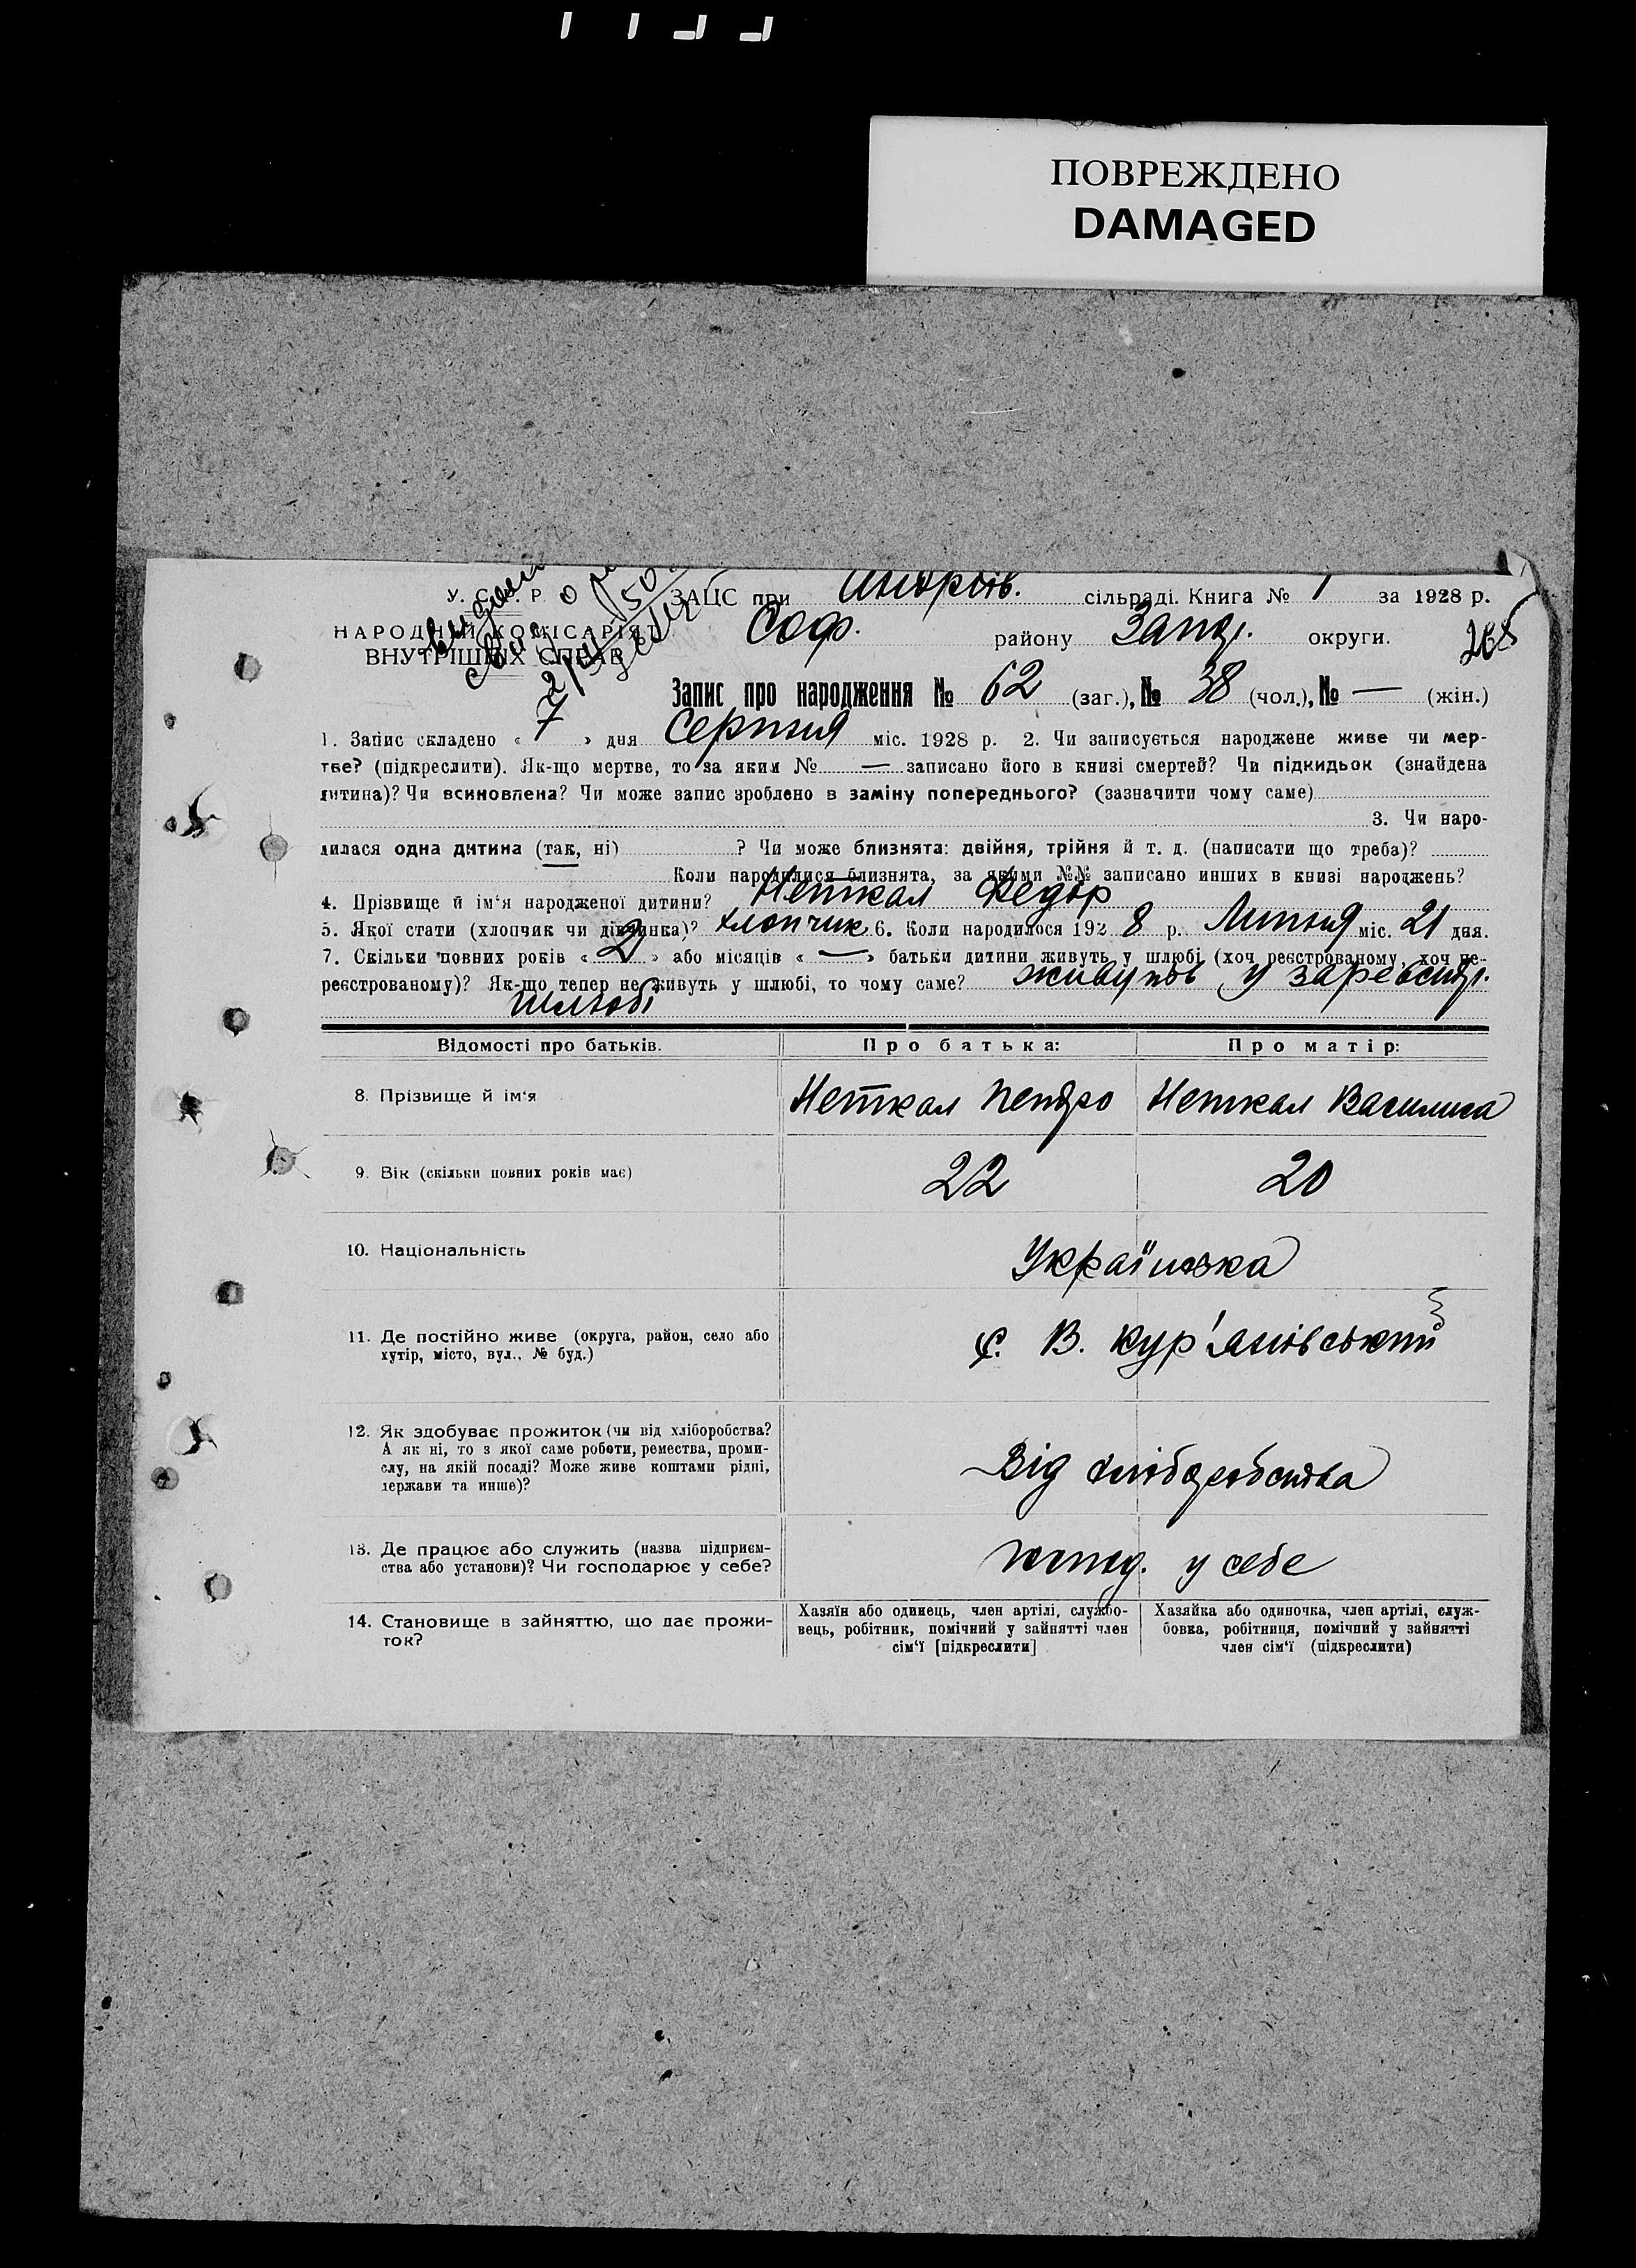 ПОВРЕЖДЕНО
DAMAGED
У. С. Р. Р ЗАЦС при Андріїв. сільраді. Книга № 1 за 1928 р.
НАРОДНИЙ КОМІСАРІЯТ Соф. району Запор. округи.
ВНУТРІШНІХ СПРАВ
Запис про народження № 62 (заг.), № 38 (чол.), № — (жін.)
1. Запис складено « 7 » дня Серпня міс. 1928 р. 2. Чи записується народжене живе чи мер-
тве? (підкреслити). Як-що мертве, то за яким № — записано його в книзі смертей? Чи підкидьок (знайдена
дитина)? Чи всиновлена? Чи може запис зроблено в заміну попереднього? (зазначити чому саме)
3. Чи наро-
дилася одна дитина (так, ні) ? Чи може близнята: двійня, трійня й т. д. (написати що треба)?
Коли народилися близнята, за якими №№ записано инших в книзі народжень?
4. Прізвище й ім'я народженої дитини? Неткал Федор
5. Якої стати (хлопчик чи дівчинка)? хлопчик 6. Коли народилося 192 8 р. Липня міс. 21 дня.
7. Скільки повних років « 2 » або місяців « — » батьки дитини живуть у шлюбі (хоч реєстрованому, хоч не-
реєстрованому)? Як-що тепер не живуть у шлюбі, то чому саме? живуть у зареєстр.
шлюбі
Відомості про батьків. Про батька: Про матір:
8. Прізвище й ім'я Неткал Петро Неткал Василиса
9. Вік (скільки повних років має) 22 20
10. Національність Українська
11. Де постійно живе (округа, район, село або
хутір, місто, вул., № буд.) с. В. Кур'янівський
12. Як здобуває прожиток (чи від хліборобства?
А як ні, то з якої саме роботи, ремества, проми-
слу, на якій посаді? Може живе коштами рідні,
держави та инше)? Від хліборобства
13. Де працює або служить (назва підприєм-
ства або установи)? Чи господарює у себе? господ. у себе
14. Становище в зайняттю, що дає прожи-
ток?
Хазяїн або одинець, член артілі, службо-
вець, робітник, помічний у зайнятті член
сім'ї [підкреслити]
Хазяйка або одиночка, член артілі, служ-
бовка, робітниця, помічний у зайнятті
член сім'ї (підкреслити)